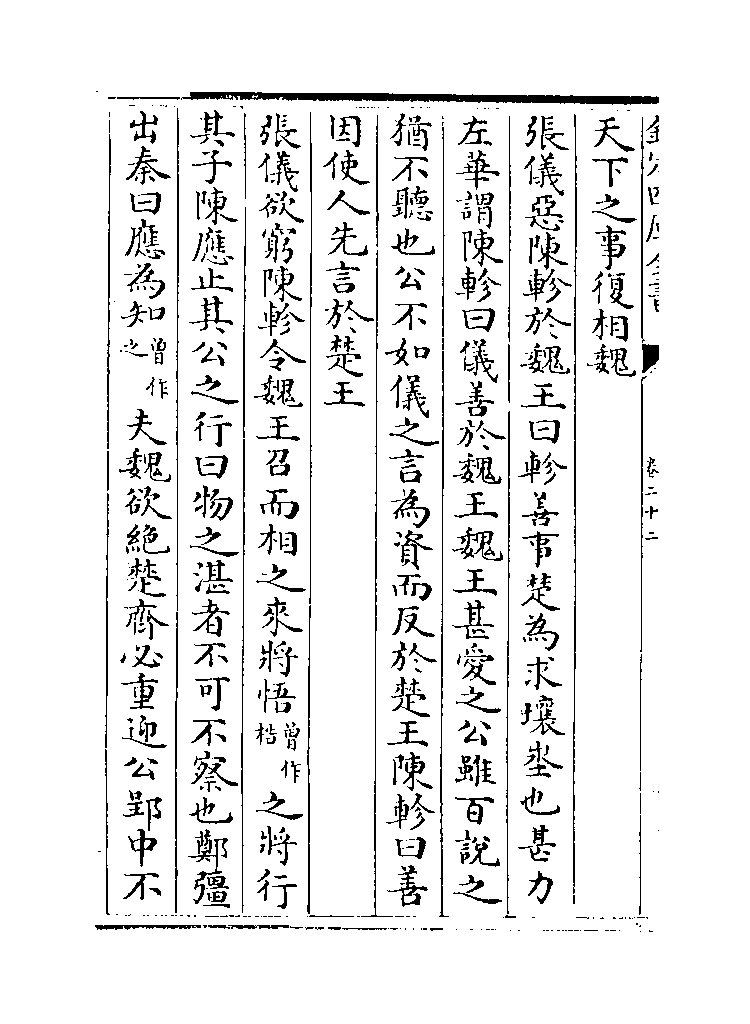 欽定四庫全書
卷二十二
天下之事復相魏
張儀惡陳軫於魏王曰軫善事楚為求壤坐也甚力
左華謂陳軫曰儀善於魏王魏王甚愛之公雖百說之
猶不聽也公不如儀之言為資而反於楚王陳軫曰善
因使人先言於楚王
張儀欲窮陳軫令魏王召而相之來將悟曾作梏之將行
其子陳應止其公之行曰物之湛者不可不察也鄭彊
出秦曰應為知曾作之夫魏欲絶楚齊必重迎公郢中不